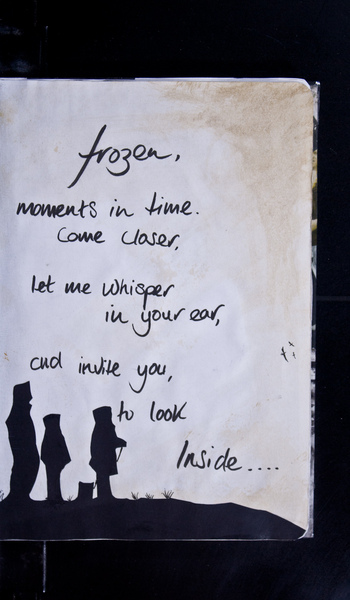 frozen,
moments in time.
Come closer,
let me whisper
in your ear,
and invite you,
to look
Inside....